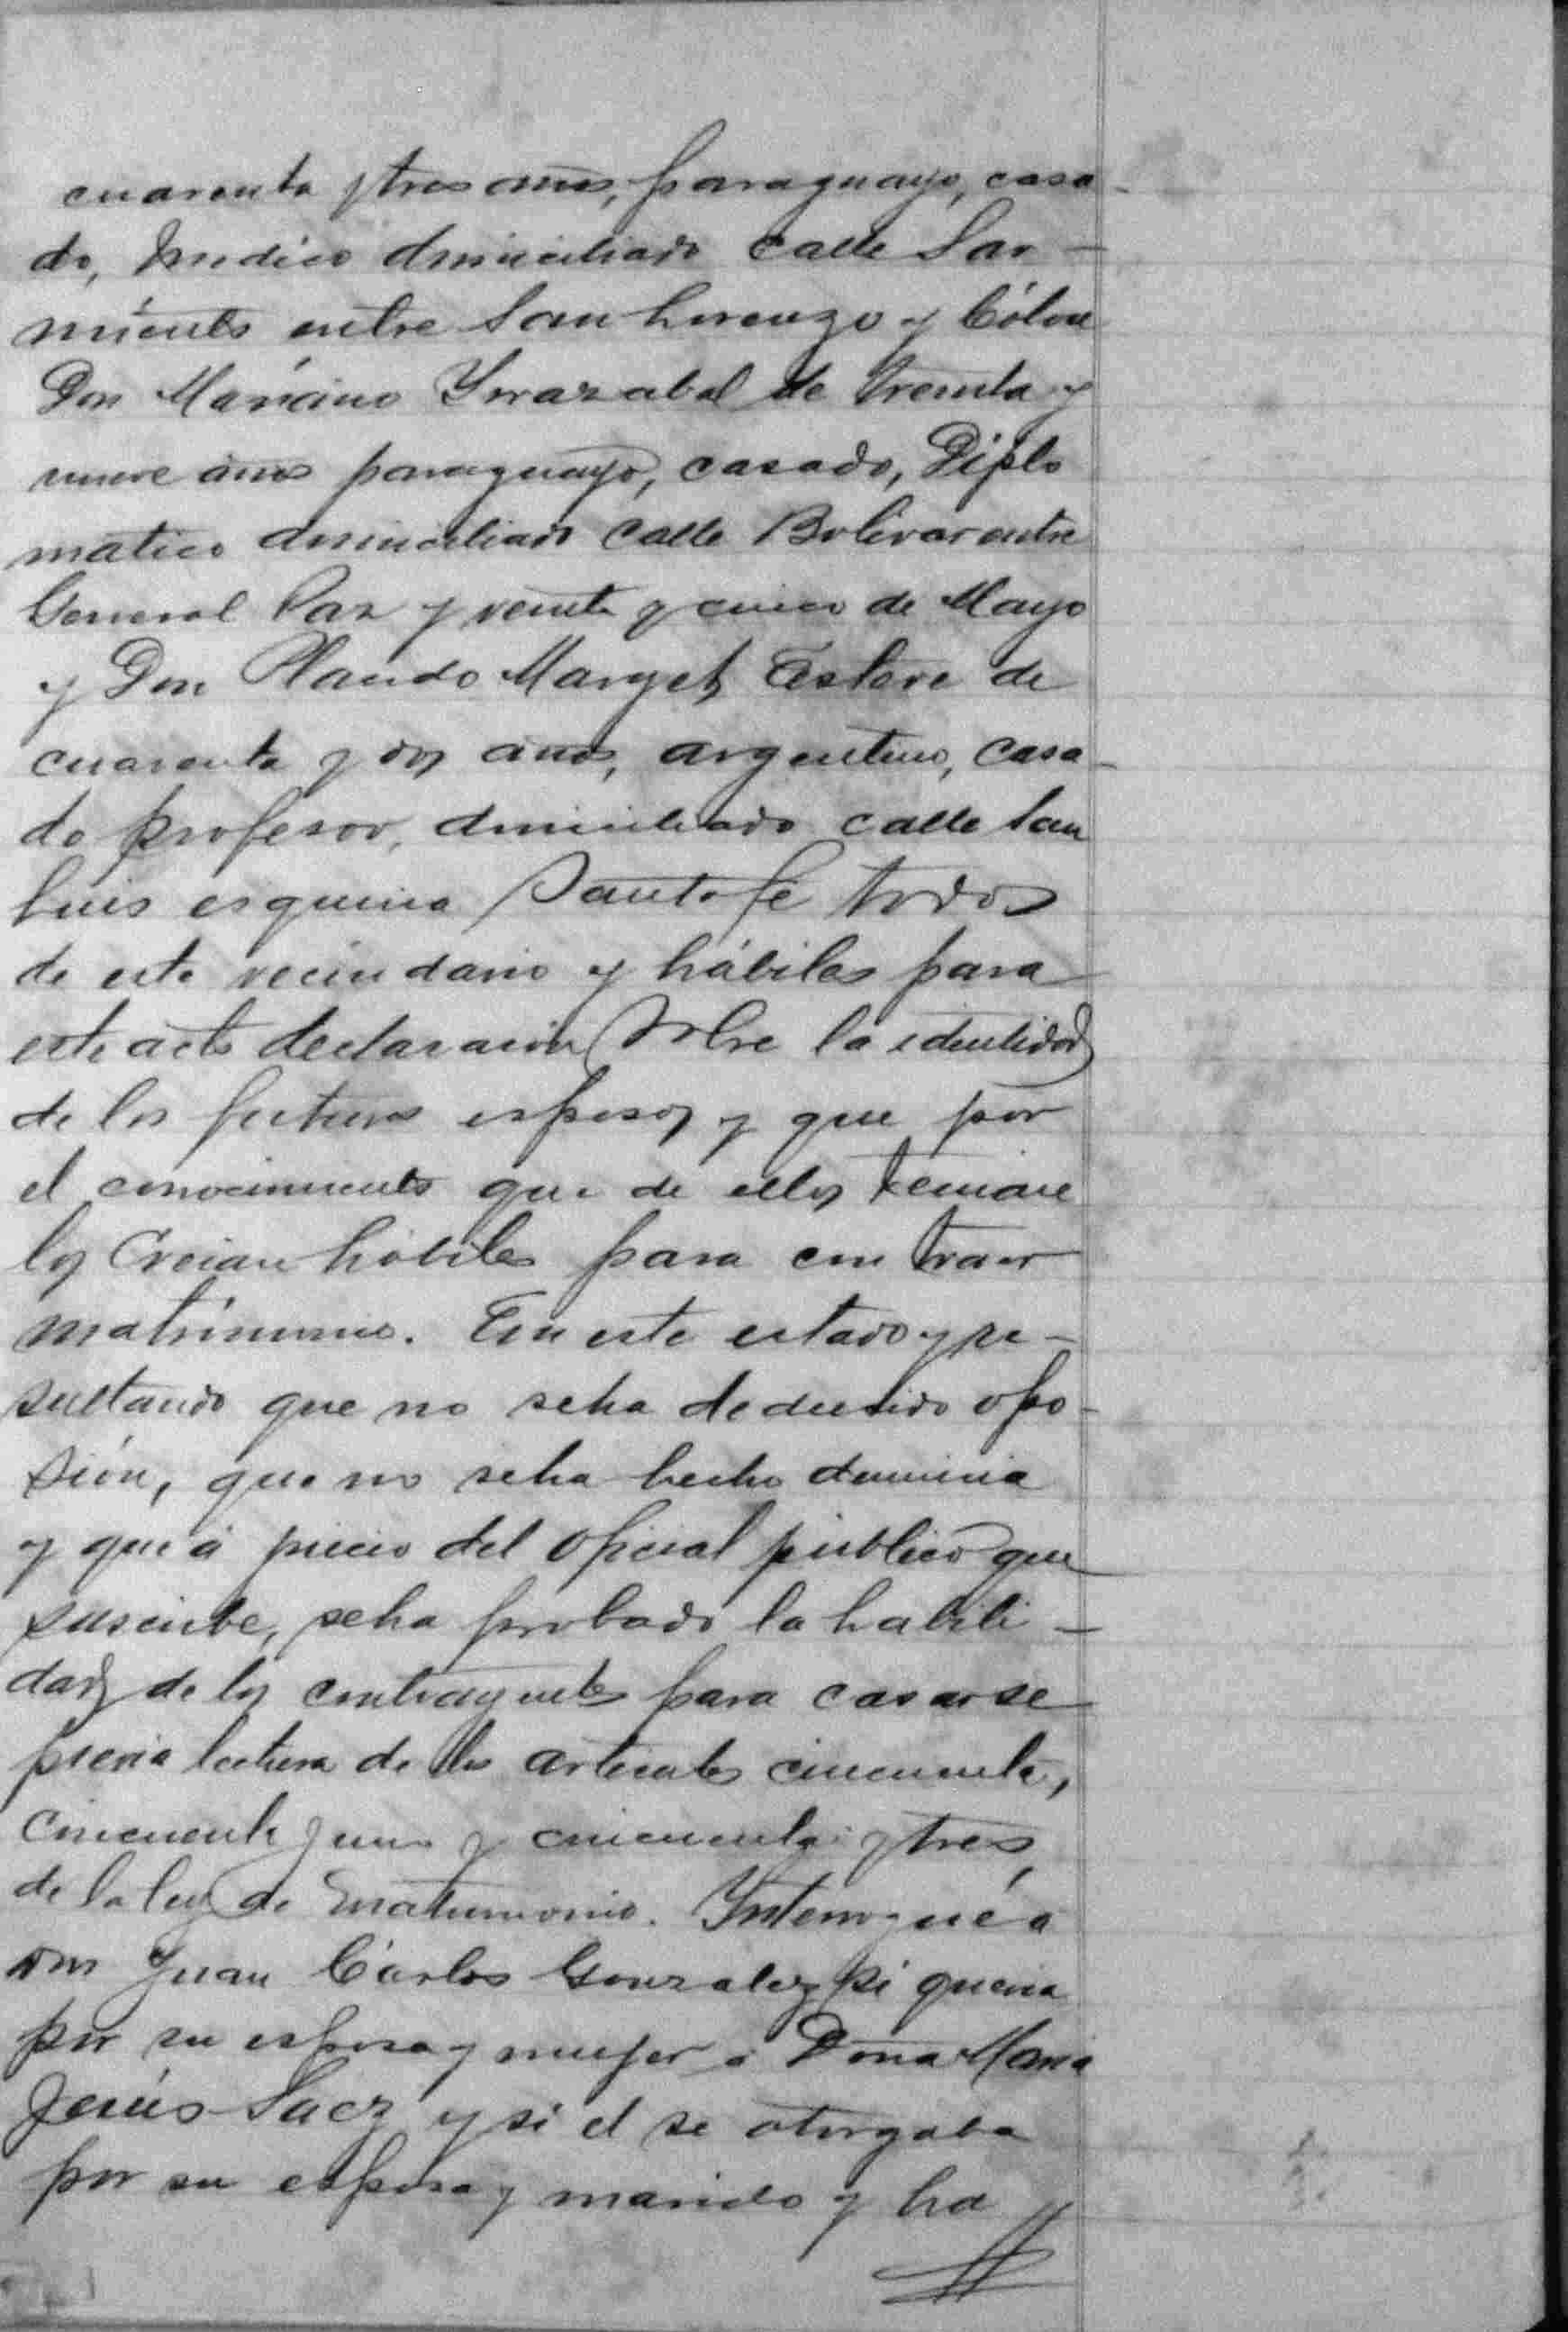 cuarenta y tres años, paraguayo, casa-
do, medico domiciliado calle Sar-
miento entre San Lorenzo y Cólon
Don Mariano Yrrazabal de treinta y
nueve años paraguayo, casado, Diplo
matico domiciliado calle Bolivar entre
General Paz y veinte y cinco de Mayo
y Don Plando Marget Esteve de
cuarenta y dos años, argentino, casa-
do profesor, domiciliado calle San
Luis esquina Santa fé todos
de este vecindario y hábiles para
este acto declararon sobre la identidad
de los futuros esposos y que por
el conocimiento que de ellos tenian
los Creian hábiles para contraer
matrimonio. En este estado y re-
sultando que no seha deducido opo-
sión, que no seha hecho denuncia
y que á juicio del oficial público que
suscribe, seha probado la habili-
dad de los contrayentes para casarse
previa lectura de los articulos cincuenta,
cincuenta y uno y cincuenta y tres,
de la ley de matrimonio. Ynterrogué a
don Juan Cárlos Gonzalez si queria
por su esposa y mujer á Doña Maria
Jesús Saez y si el se otorgaba
por su esposo y marido y ha